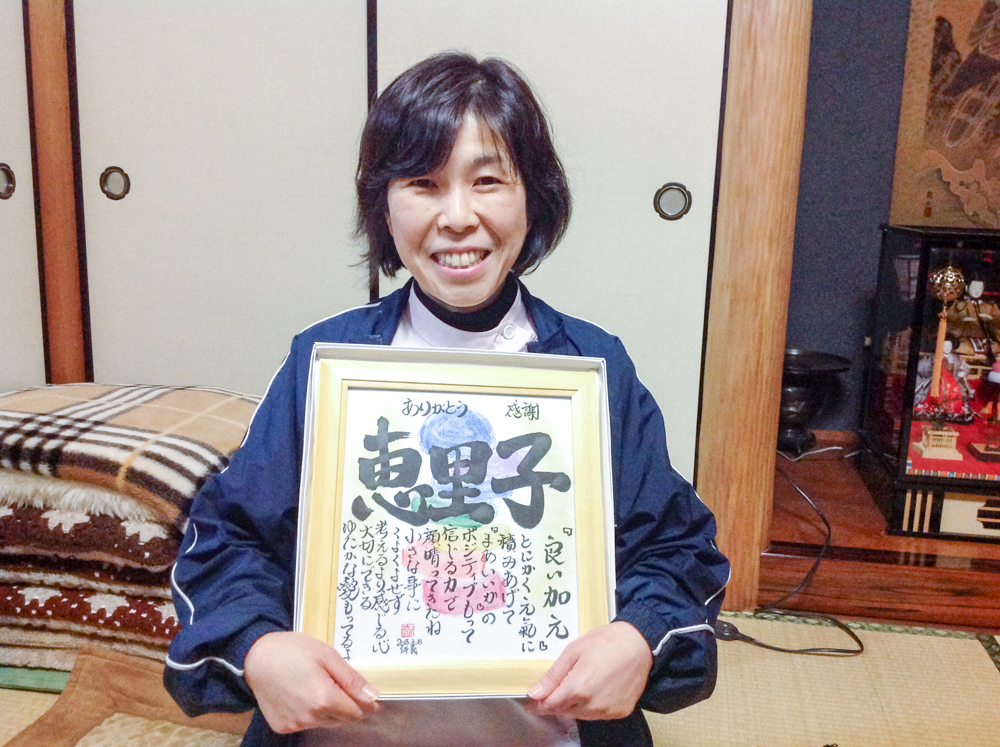 ありがとう 感謝
恵里子
『良い加元』
とにかく元氣に
積みあげて
『まあいいか』の
ポジティブもって
信じる力で
顔晴ってきたね
小さな事に
くよくよせず
考えるより感じる心
大切にできる
ゆたかな愛もってるよ